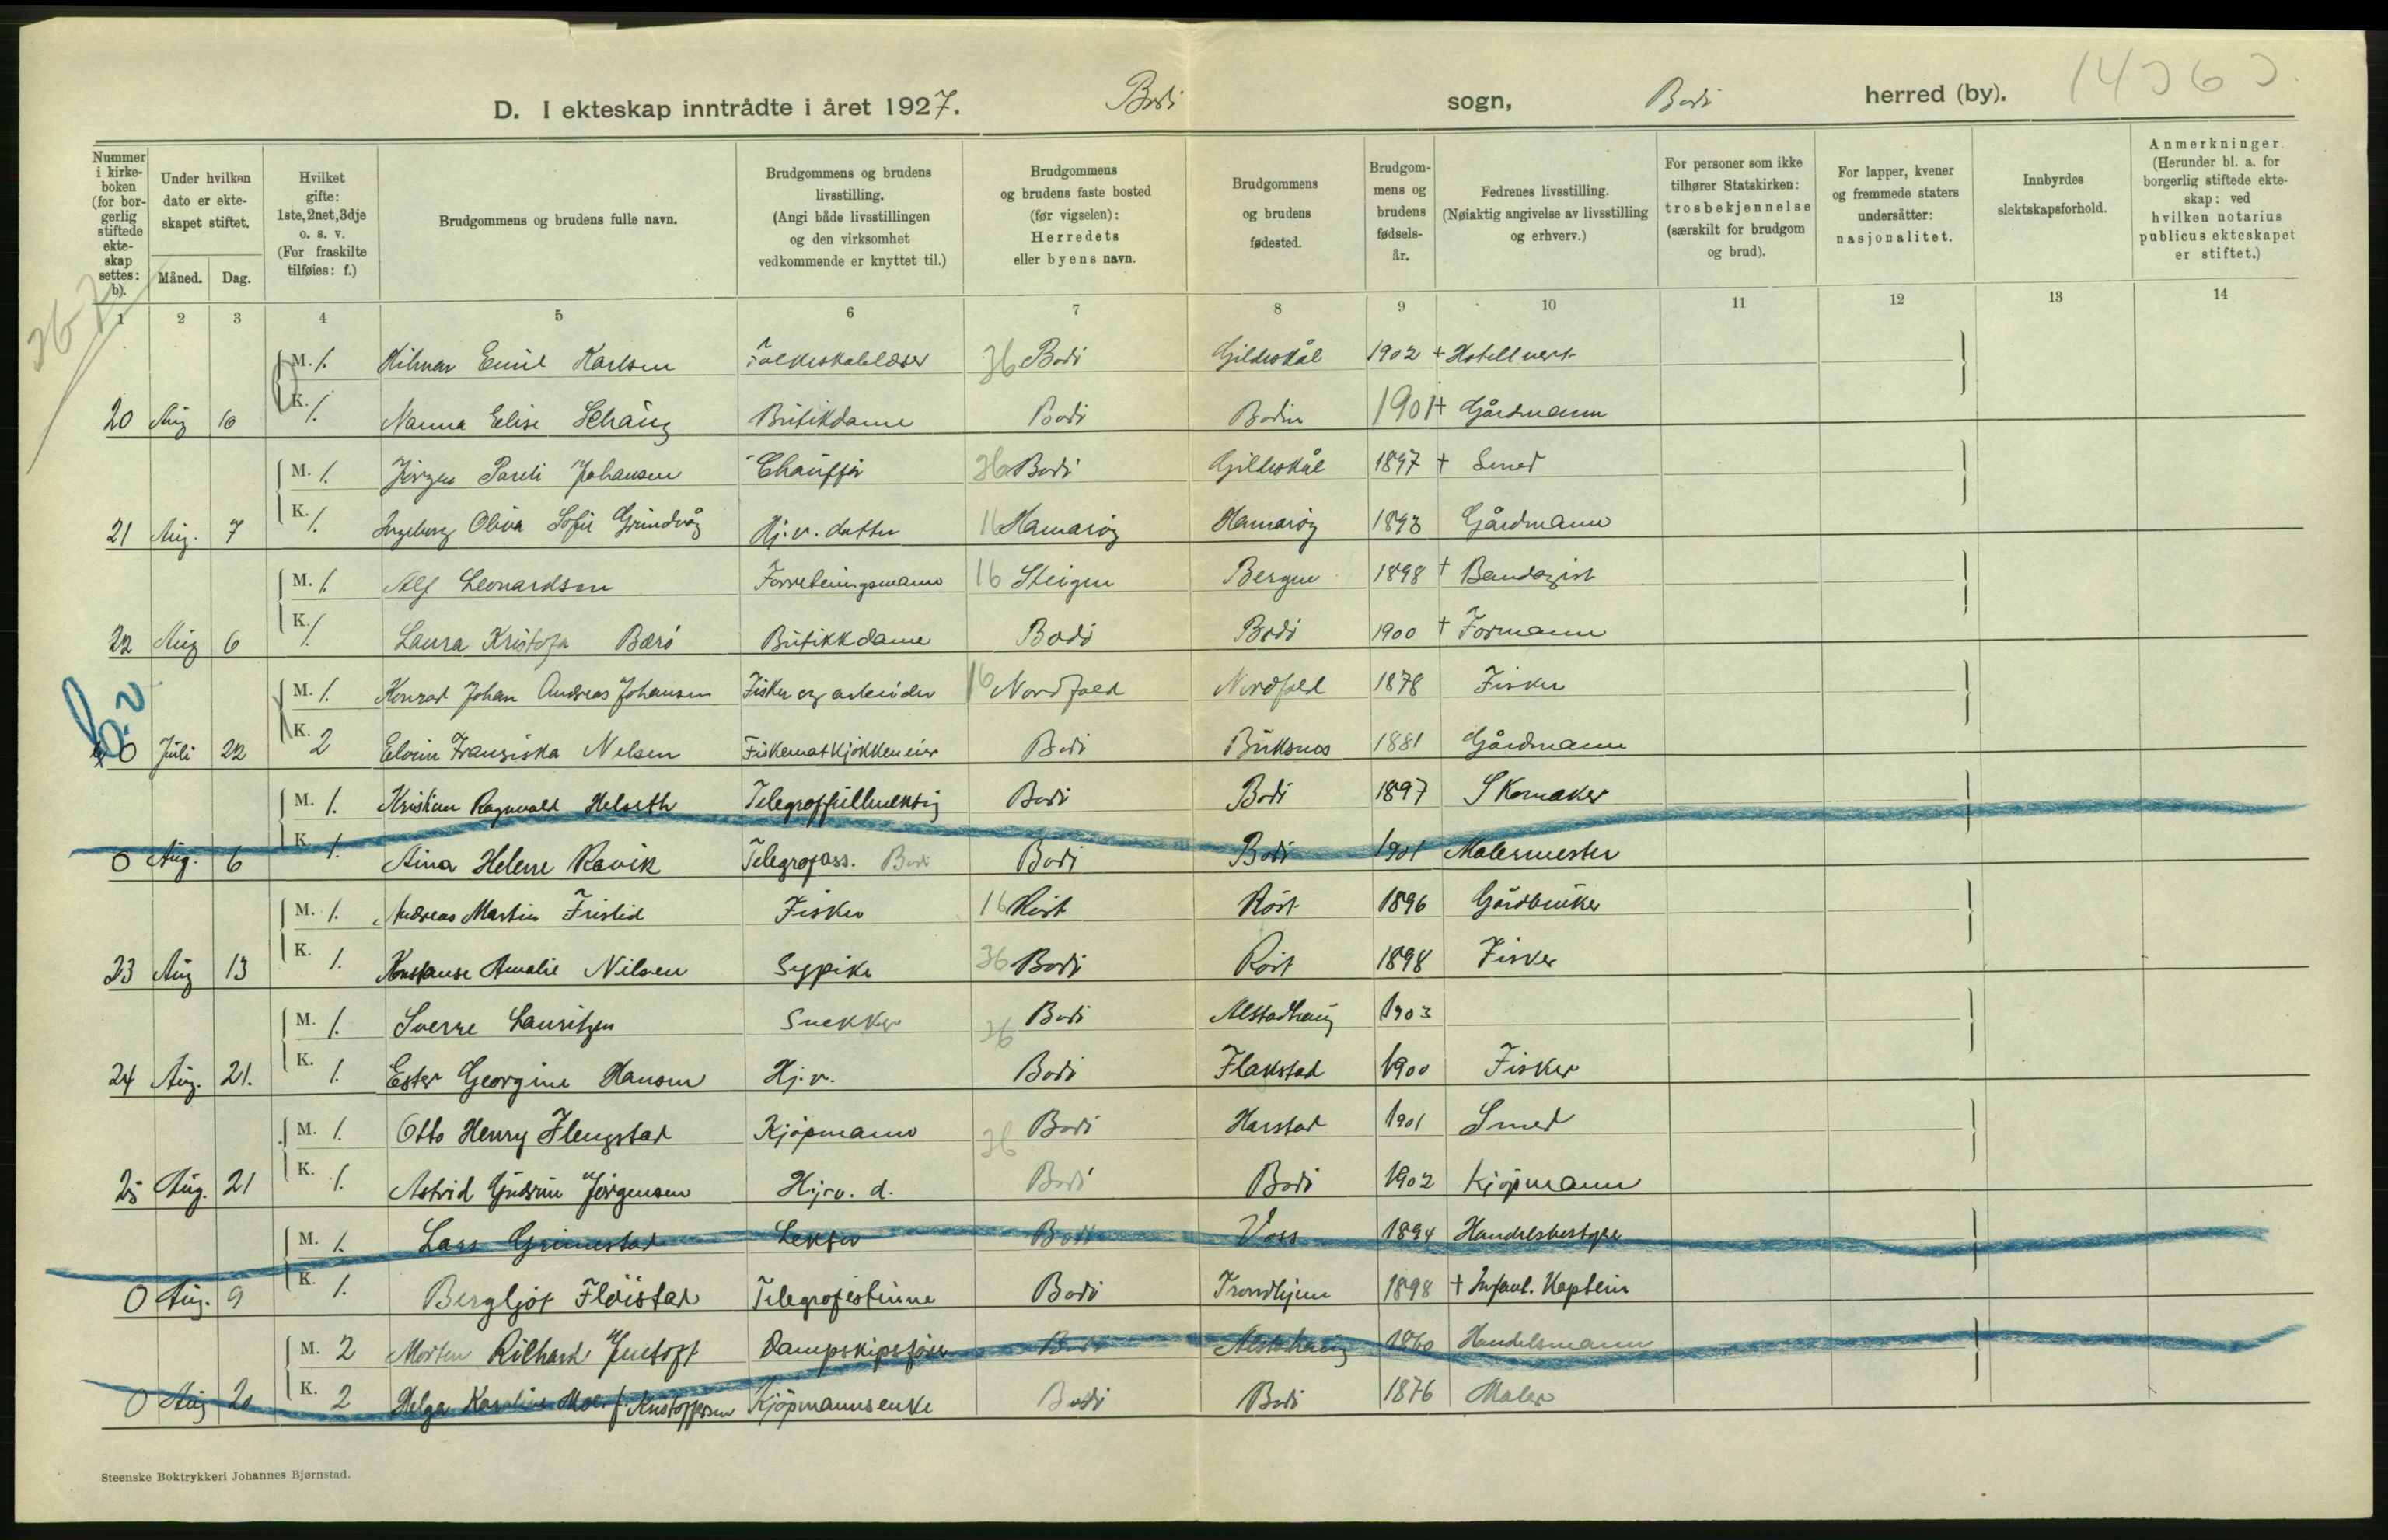 14363.
D. I ekteskap inntrådte i året 1927. Bodö sogn, Bodö herred (by).
Nummer i kirke-boken (for bor-gerlig stiftede ekte-skap settes: b).
Under hvilken dato er ekte-skapet stiftet.
Måned. Dag.
Hvilket gifte: 1ste, 2net, 3dje o. s. v. (For fraskilte tilføies: f.)
Brudgommens og brudens fulle navn.
Brudgommens og brudens livsstilling. (Angi både livsstillingen og den virksomhet vedkommende er knyttet til.)
Brudgommens og brudens faste bosted (før vigselen): Herredets eller byens navn.
Brudgommens og brudens fødested.
Brudgom-mens og brudens fødsels-år.
Fedrenes livsstilling. (Nøiaktig angivelse av livsstilling og erhverv.)
For personer som ikke tilhører Statskirken: trosbekjennelse (særskilt for brudgom og brud).
For lapper, kvener og fremmede staters undersåtter: nasjonalitet.
Innbyrdes slektskapsforhold.
Anmerkninger. (Herunder bl. a. for borgerlig stiftede ekte-skap: ved hvilken notarius publicus ekteskapet er stiftet.)
1 2 3 4 5 6 7 8 9 10 11 12 13 14
36-7
M. 1. Hilmar Emil Karlsen Folkeskolelærer 36 Bodö Gildeskål 1902 + Hotellvert
20 Aug 10 K. 1. Nanna Elise Schäug Butikdame Bodö Bodin 1901 + Gårdmann
M. 1. Jörgen Pauli Johansen Chaufför 36 Bodö Gildeskål 1897 + Smed
21 Aug. 7 K. 1. Ingeborg Oliva Sofie Grundvåg Hj. v. datter 16 Hamaröy Hamaröy 1893 Gårdmann
M. 1. Alf Leonardsen Forretningsmann 16 Steigen Bergen 1898 + Bandagist
22 Aug 6 K. 1. Laura Kristofa Barö Butikkdame Bodö Bodö 1900 + Formann
b. 2
M. 1. Konrad Johan Andreas Johansen Fisker og arbeider 16 Nordfold Nordfold 1878 Fisker
0 Juli 22 K. 2 Elvin Fransiska Nelsen Fiskematkjökkeneier Bodö Buksnes 1881 Gårdmann
M. 1. Kristian Ragnvald Helseth Telegraffullmektig Bodö Bodö 1897 Skomaker
0 Aug. 6 K. 1. Aina Helene Ravik Telegrafass. Bodö Bodö Bodö 1901 Malermester
M. 1. Andreas Martin Fristid Fisker 16 Röst Röst 1896 Gårdbruker
23 Aug 13 K. 1. Konstanse Amalie Nilsen Sypike 36 Bodö Röst 1898 Fisker
M. 1. Sverre Lauritzen Snekker 36 Bodö Alstadhaug 1903
24 Aug. 21. K. 1. Ester Georgine Hansen Hj. v. Bodö Flakstad 1900 Fisker
M. 1. Otto Henry Flengstad Kjöpmann 36 Bodö Harstad 1901 Smed
25 Aug. 21 K. 1. Astrid Gudrun Jörgensen Hj. v. d. Bodö Bodö 1902 Kjöpmann
M. 1. Lars Grimestad Lektor Bodö Voss 1894 Handelsbestyrer
0 Aug. 9 K. 1. Bergljot Flöistad Telegrafistinne Bodö Trondhjem 1898 + Infant. Kaptein
M. 2 Morten Richard Jentoft Dampskipsförer Bodö Alstahaug 1860 Handelsmann
0 Aug 20 K. 2 Helga Karoline Moe f. Kristoffersen Kjöpmannsenke Bodö Bodö 1876 Maler
Steenske Boktrykkeri Johannes Bjørnstad.